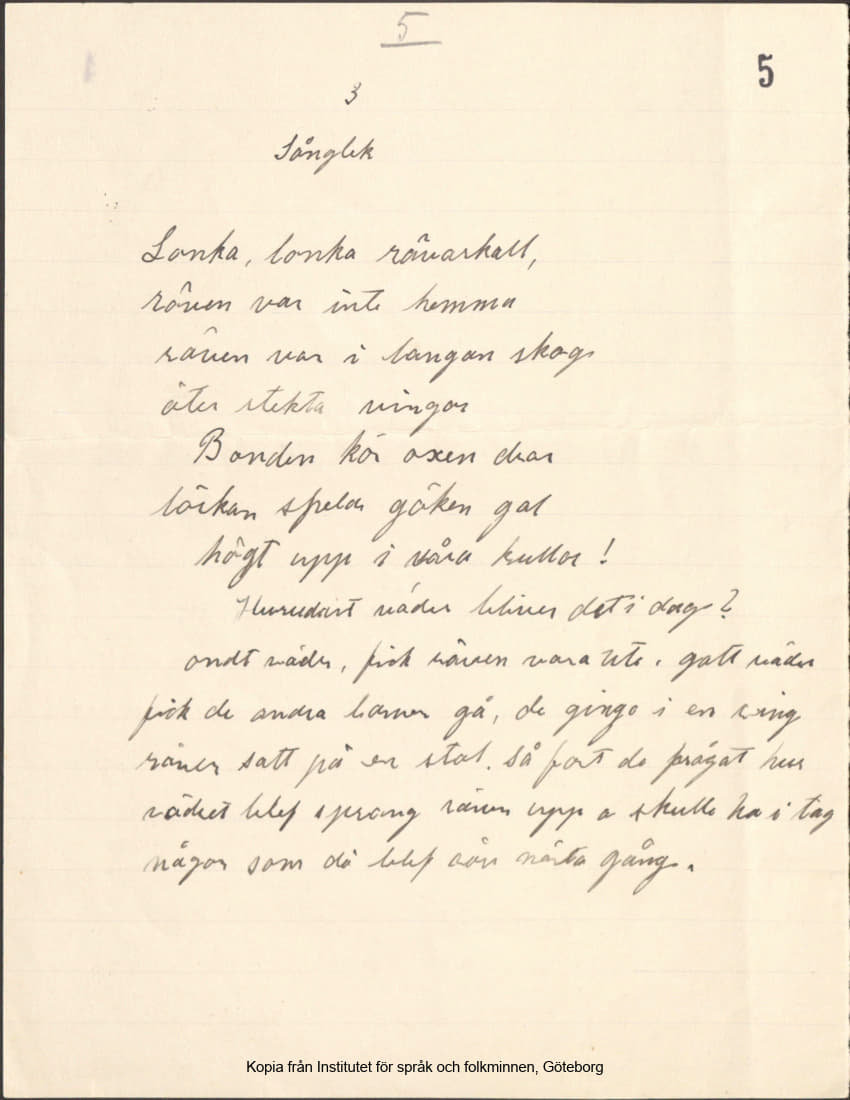 5
5
3
Sånglek
Lonka, lonka rävaskall,
räven var inte hemma
räven var i langan skog
äter stekta vingar
Bonden kör oxen drar
lörkan spelar göken gal
högt upp i våra kullar!
Hurudant väder bliver det i dag?
ondt väder, fick räven vara ute, gott väder
fick de andra barnen gå, de gingo i en ring
räven satt på en stol. Så fort de frågat hur
vädret blef sprang räven upp o skulle ha i tag
någon som då blef räv nästa gång.
Kopia från Institutet för språk och folkminnen, Göteborg